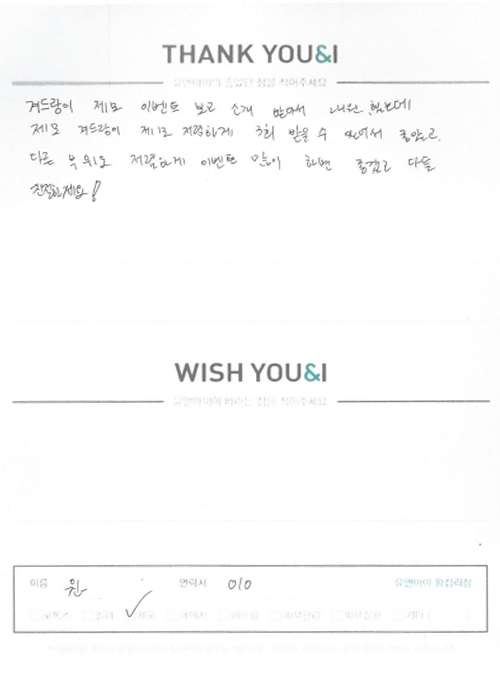 THANK YOU&I
유앤아이의 좋았던 점을 적어주세요
겨드랑이 제모 이벤트 보고 소개 받아서 내원 했는데
제모 겨드랑이 제모 저렴하게 3회 받을 수 있어서 좋았고
다른 부위도 저렴하게 이벤트 많이 하면 좋겠고 다들
친절하세요!
WISH YOU&I
유앤아이에 바라는 점을 적어주세요
이름 원 연락처 010 유앤아이 왕십리점
보톡스 필러 제모 레이저 여드름 피부관리 피부질환 기타 ( )